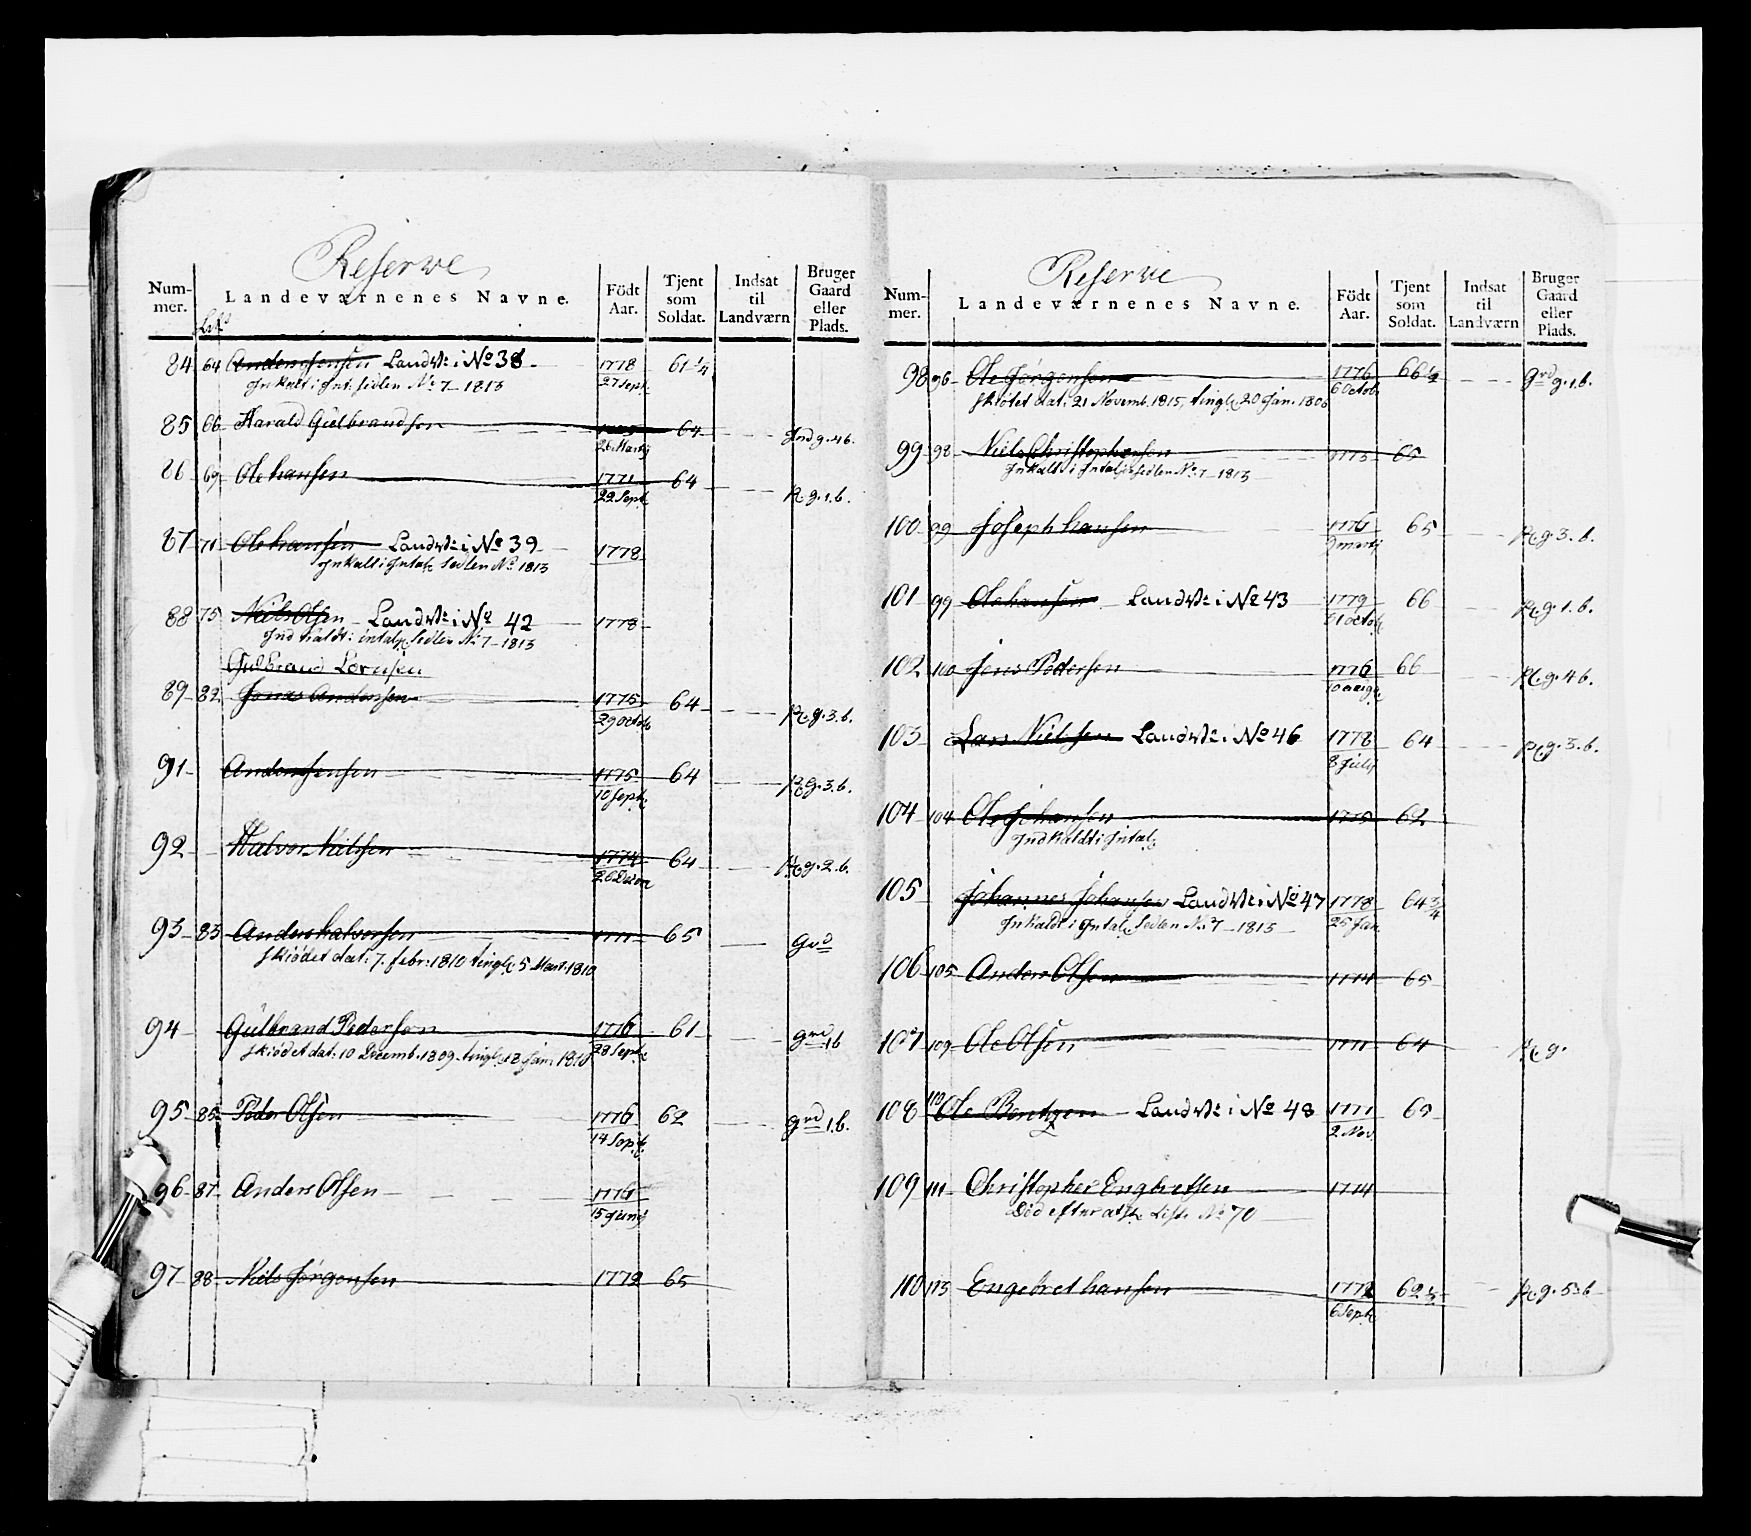 Reserve
Num-
mer.
Landeværnenes Navne.
Födt
Aar.
Tjent
som
Soldat.
Indsat
til
Landværn
Bruger
Gaard
eller
Plads.
84 64 Anders Jensen Landv: i No 38 1778 61 1/4
Inkalt i Int: sedlen No 7 - 1813 27 Sept.
85 66 Harald Gulbrandsen 64 g. 4 b.
26 Martij
86 69 Ole hansen 1771 64 g. 1. b.
22 Sept.
87 71 Ole hansen Landv: i No 39 1778
Inkalt i Intal: Sedlen No 1813
88 75 Niels Olsen Landv: i No 42 1778
Ind kaldt: intal: Sedlen No 7 - 1813
Gulbrand
89 82 Jonas Andersen 1775 64 Pl. g. 3. b.
29 Octob
91 Anders Jensen 1775 64 Pl. g. 3. b.
10 Sept.
92 Halvor Nielsen 1774 64 Pl. g. 2. b.
26 Decem
93 83 Anders halvorsen 1771 65 Grd
Skiödet dat: 7. febr: 1810 tingl: 5 Mart: 1810
94 Gulbrand Pedersen 1776 61 grd 1 b
Skiödet dat: 10 Decemb. 1809. tingl: 18 Jan: 1810 28 Sept:
95 85 Peder Olsen 1776 62 grd 1. b.
14 Sept
96 87 Anders Olsen 1776
15 Junij
97 88 Niels Jörgensen 1772 65
Reserve
Num-
mer.
Landeværnenes Navne.
Födt
Aar.
Tjent
som
Soldat.
Indsat
til
Landværn
Bruger
Gaard
eller
Plads.
98 96 Ole Jörgensen 1776 66 1/2 grd g. 1. b.
Skiötet dat: 21 Novemb. 1815, tingl: 20 Jan. 6 Octob.
99 98 Niels Christophersen 1773 65
Inkaldt i Intal: sedlen No 7 - 1813
100 99 Joseph hansen 1776 65 Pl. g. 3. b.
9 martij
101 99 Ole hansen Landv: i No 43 1779 66 Pl. g. 1. b.
Octob
102 100 Jens Pedersen 1776 66 Pl. g. 4 b.
10 aug
103 Lars Nielsen Landv: i No 46 1778 64 Pl. g. 3. b.
8 July
104 104 Ole Johansen 1775 62
Indkaldt i Intal:
105 Johannes Johansen Landv: i No 47 1778 64 3/4
Inkaldt i Intal: Sedlen No 7 - 1813 25 Jan
106 105 Anders Olsen 1774 65
107 109 Ole Olsen 1771 64 Pl. g.
108 110 Ole Bentzen Landv: i No 48 1777 65
2 Nov.
109 111 Christopher Engebretsen 1774
Död efter Liste No 70
110 113 Engebret hansen 1772 62 Pl. g. 5 b
6 Sept